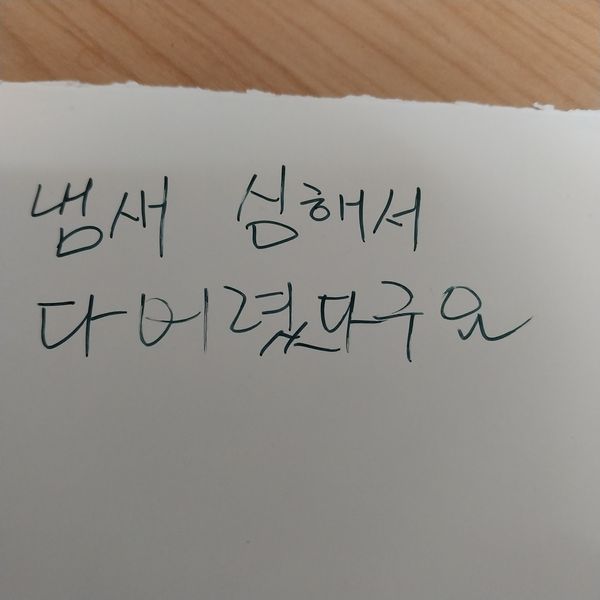 냄새 심해서
다 버렸다구요